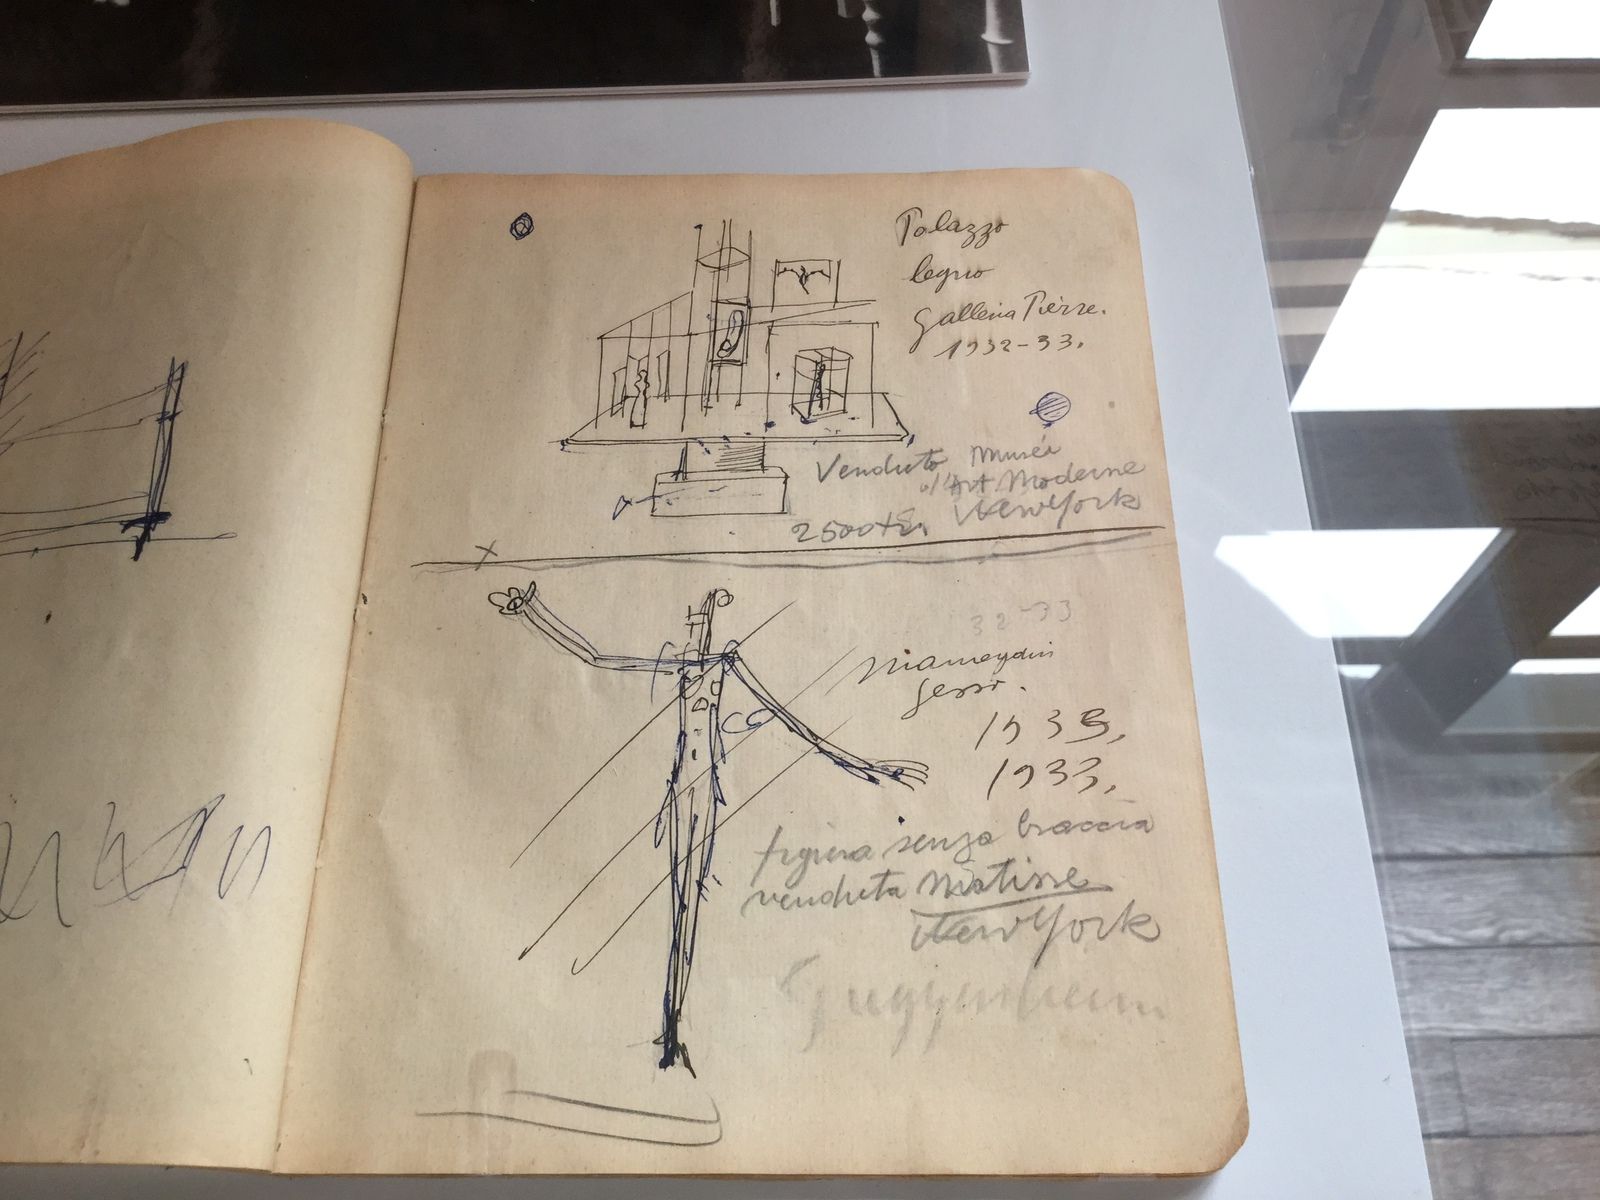 Palazzo
legno
Galleria Pierre.
1932-33.
Venduto Museé
d'Art Moderne
NewYork
2500
32-33
gesso.
1933,
1933,
figura senza braccia
venduta Matisse
NewYork
Guggenheim